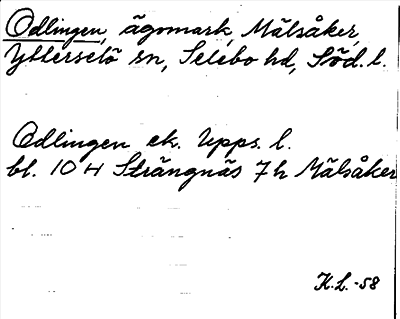 Odlingen, ägomark, Mälsåker,
Ytterselö sn, Selebo hd, Söd. l.
Odlingen ek. Upps. l.
bl. 104 Strängnäs 7h Mälsåker
K.L.-58